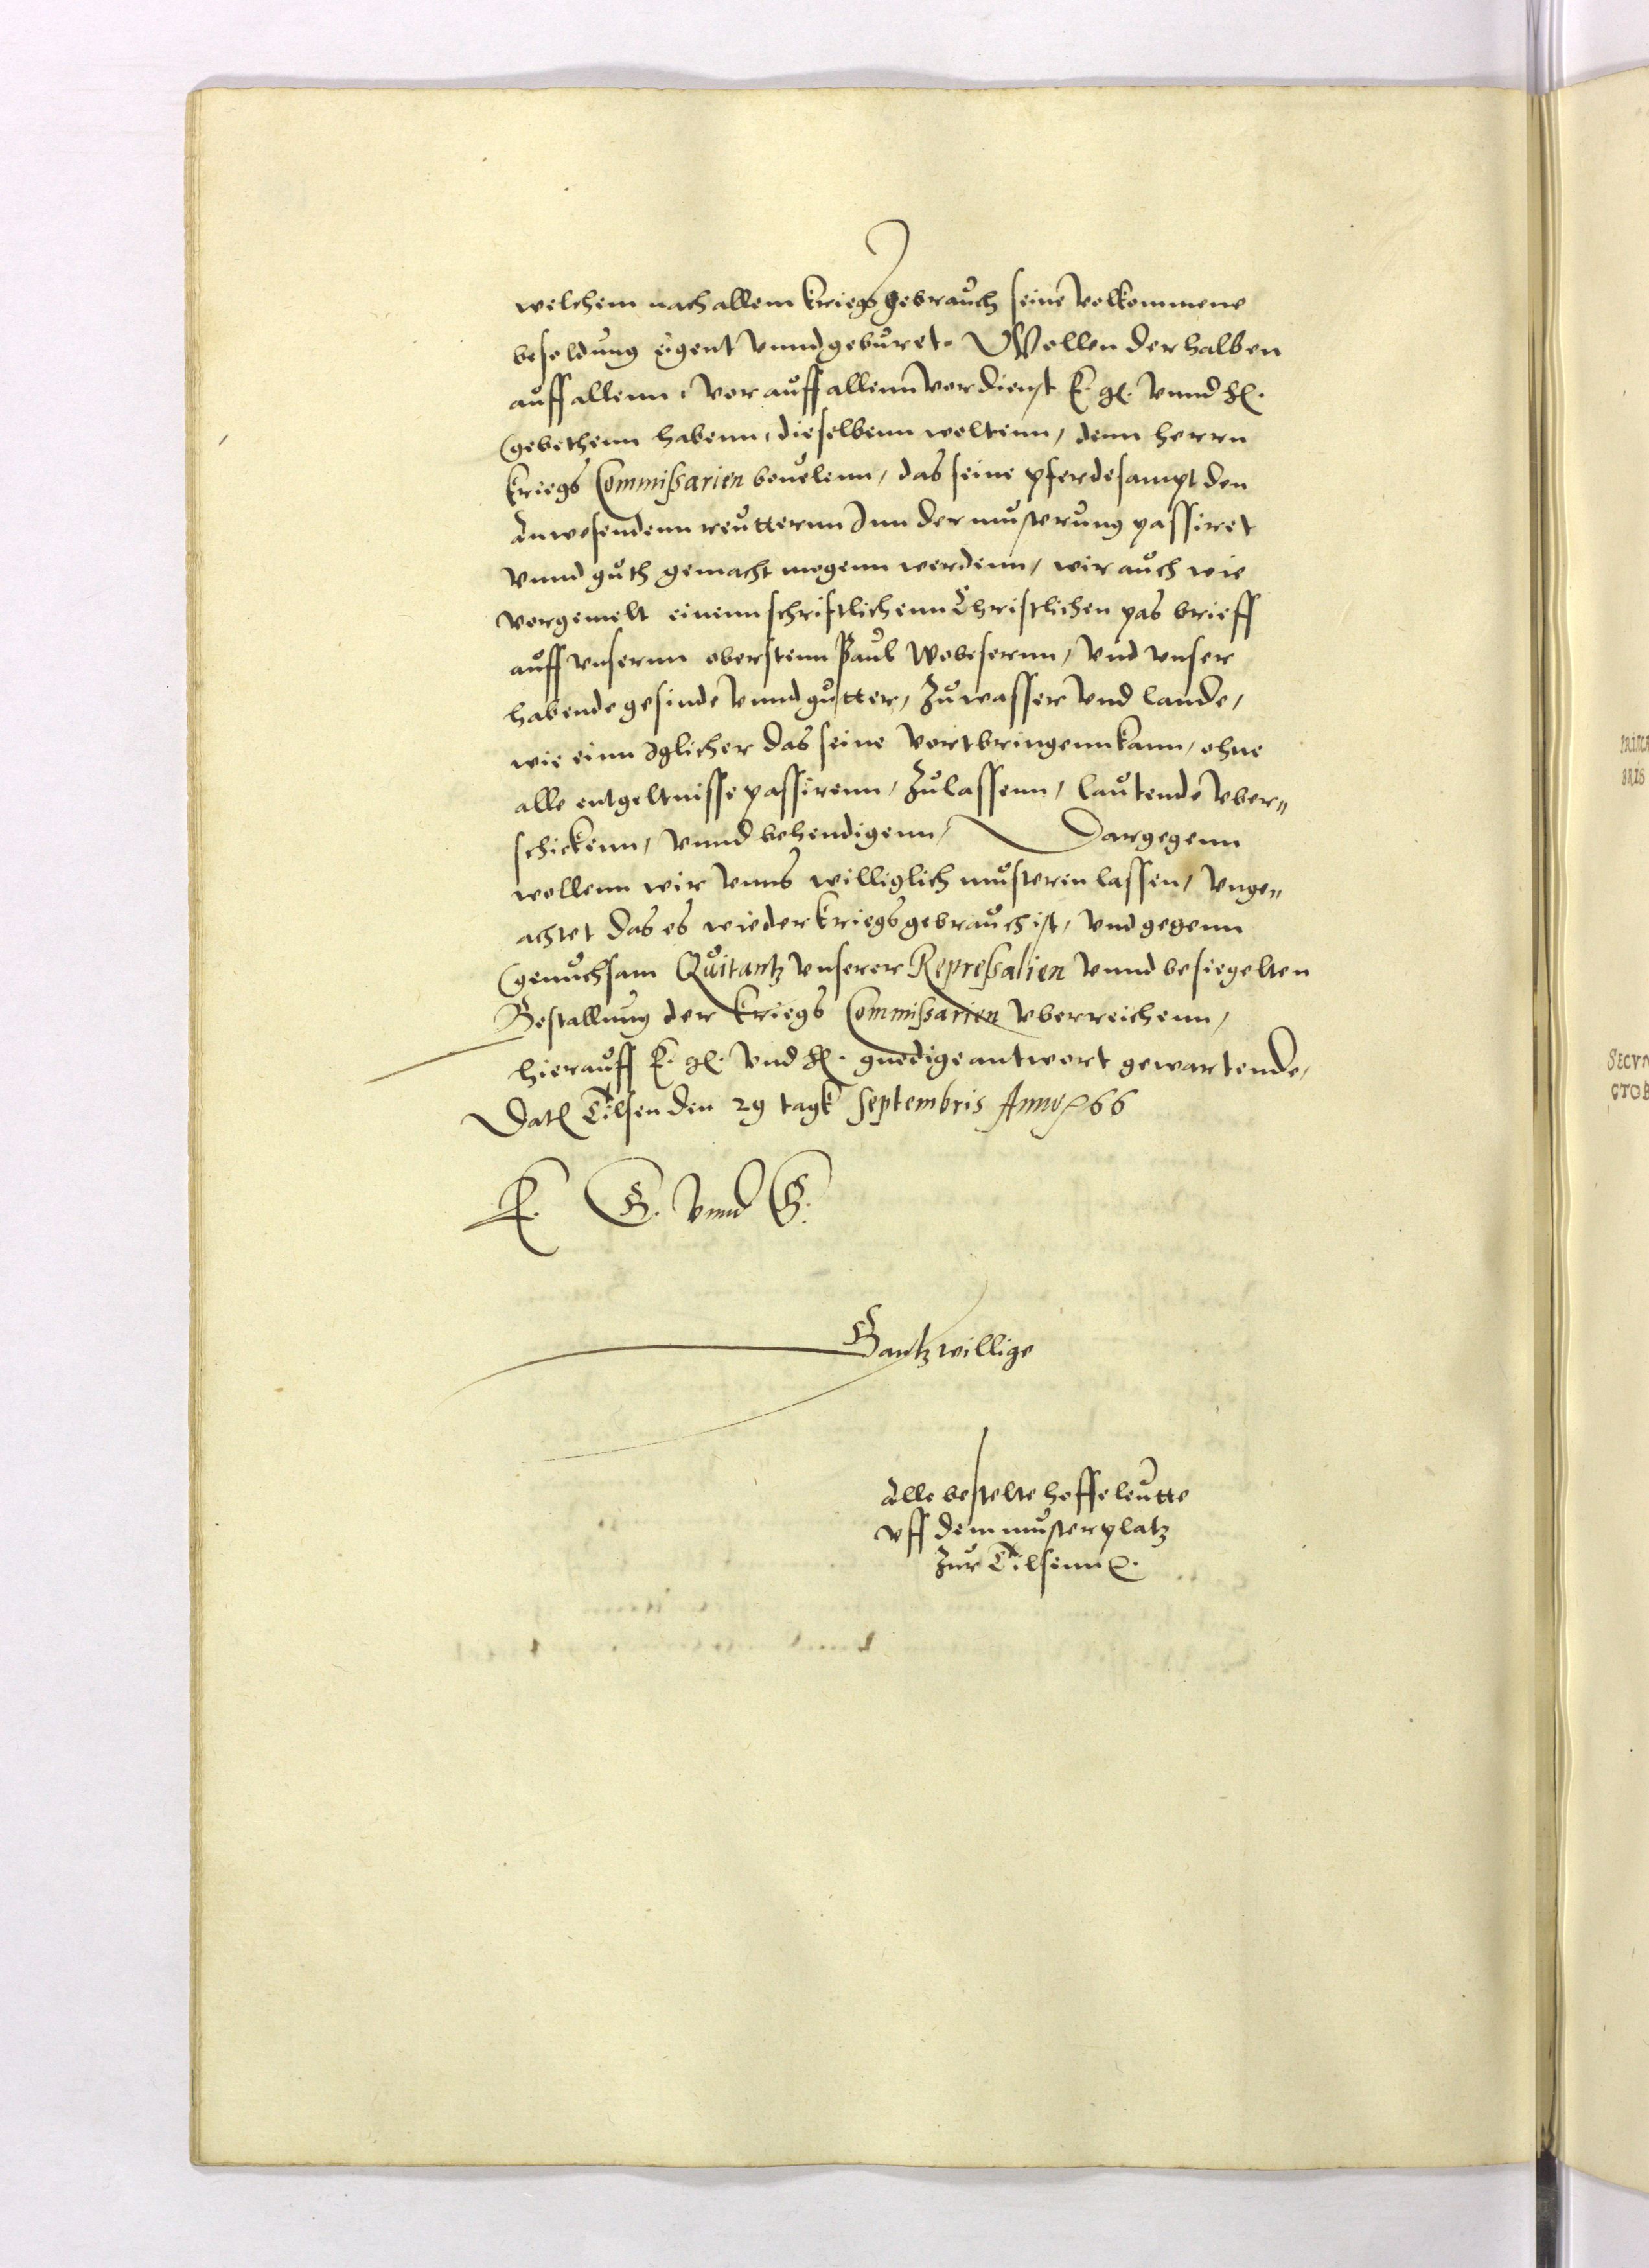 welchem nach allem kriegs gebrauch seine volkommene
besoldung eigent vnnd geburet. Wollen derhalben
auff allenn, vor auff allenn verdienst E. g. vnnd h.
gebethenn habenn, dieselbenn woltenn, denn herrn
kriegs Commißarien beuelenn, das seine pferde sampt den
Anwesendenn reutternn Inn der musterung passiret
vnnd guth gemacht mogenn werdenn, wir auch wie
vorgemelt einenn schriftlichenn Christlichen pas brieff
auff vnsernn oberstenn Paul Wobesernn, vnd vnser
habende gesinde vnnd gutter, zu wasser vnd lande,
wie einn Iglicher das seine vortbringenn kann, ohne
alle entgeltnisse passirenn, zulassenn, lautende vber„
schickenn, vnnd behendigenn, Dargegenn
wollenn wir vnns williglich musteren lassen, vnge„
achtet das es wieder kriegs gebrauch ist, vnd gegenn
genuchsam Quitantz vnserer Repreßalien vnnd besiegelten
Bestallung der kriegs Commißarien vberreichenn,
hierauff E. g. vnd h. gnedige antwort gewartende,
Dat Tilsen den 29 tagk Septembris Anno 66
E. G. vnnd G.
Gantzwillige
Alle bestelte hoffeleutte
vff dem musterplatz
zur Tilsenn